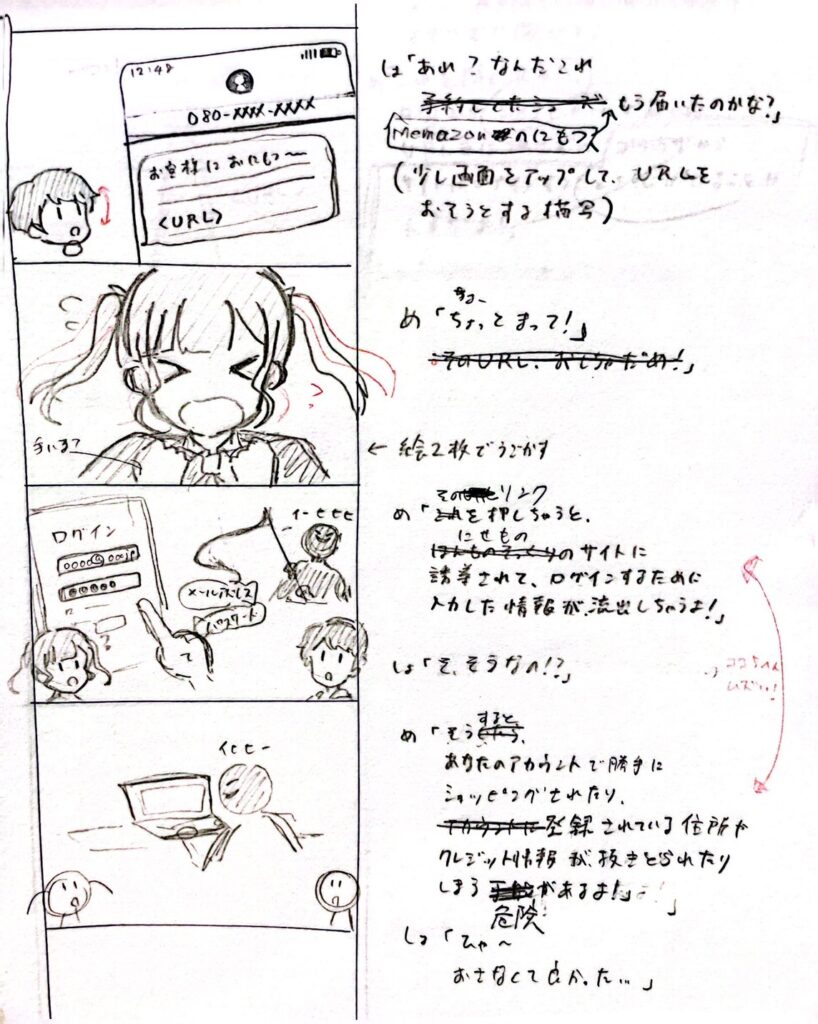 12:48
080-XXXX-XXXX
お客様におにもつ〜
<URL>
し「あれ？なんだこれ
予約してたシューズ
もう届いたのかな？」
Memazonのにもつ
(少し画面をアップして、URLを
おそうとする描写)
め「ちょっとまって！」
そのURL、おしちゃだめ！」
手いる？
← 絵2枚でうごかす
ログイン
メールアドレス
パスワード
イーヒヒヒ
その リンク
め「これを押しちゃうと、
にせもの
ほんものそっくりのサイトに
誘導されて、ログインするために
入力した情報が、流出しちゃうよ！」
し「そ、そうなの！？」
ココらへん
イヒヒー
すると
め「そう
あなたのアカウントで勝手に
ショッピングされたり、
アカウントに登録されている住所や
クレジット情報が、抜きとられたり
しまう があるよ！」
危険
し「ひゃ〜
おさなくて良かった…」